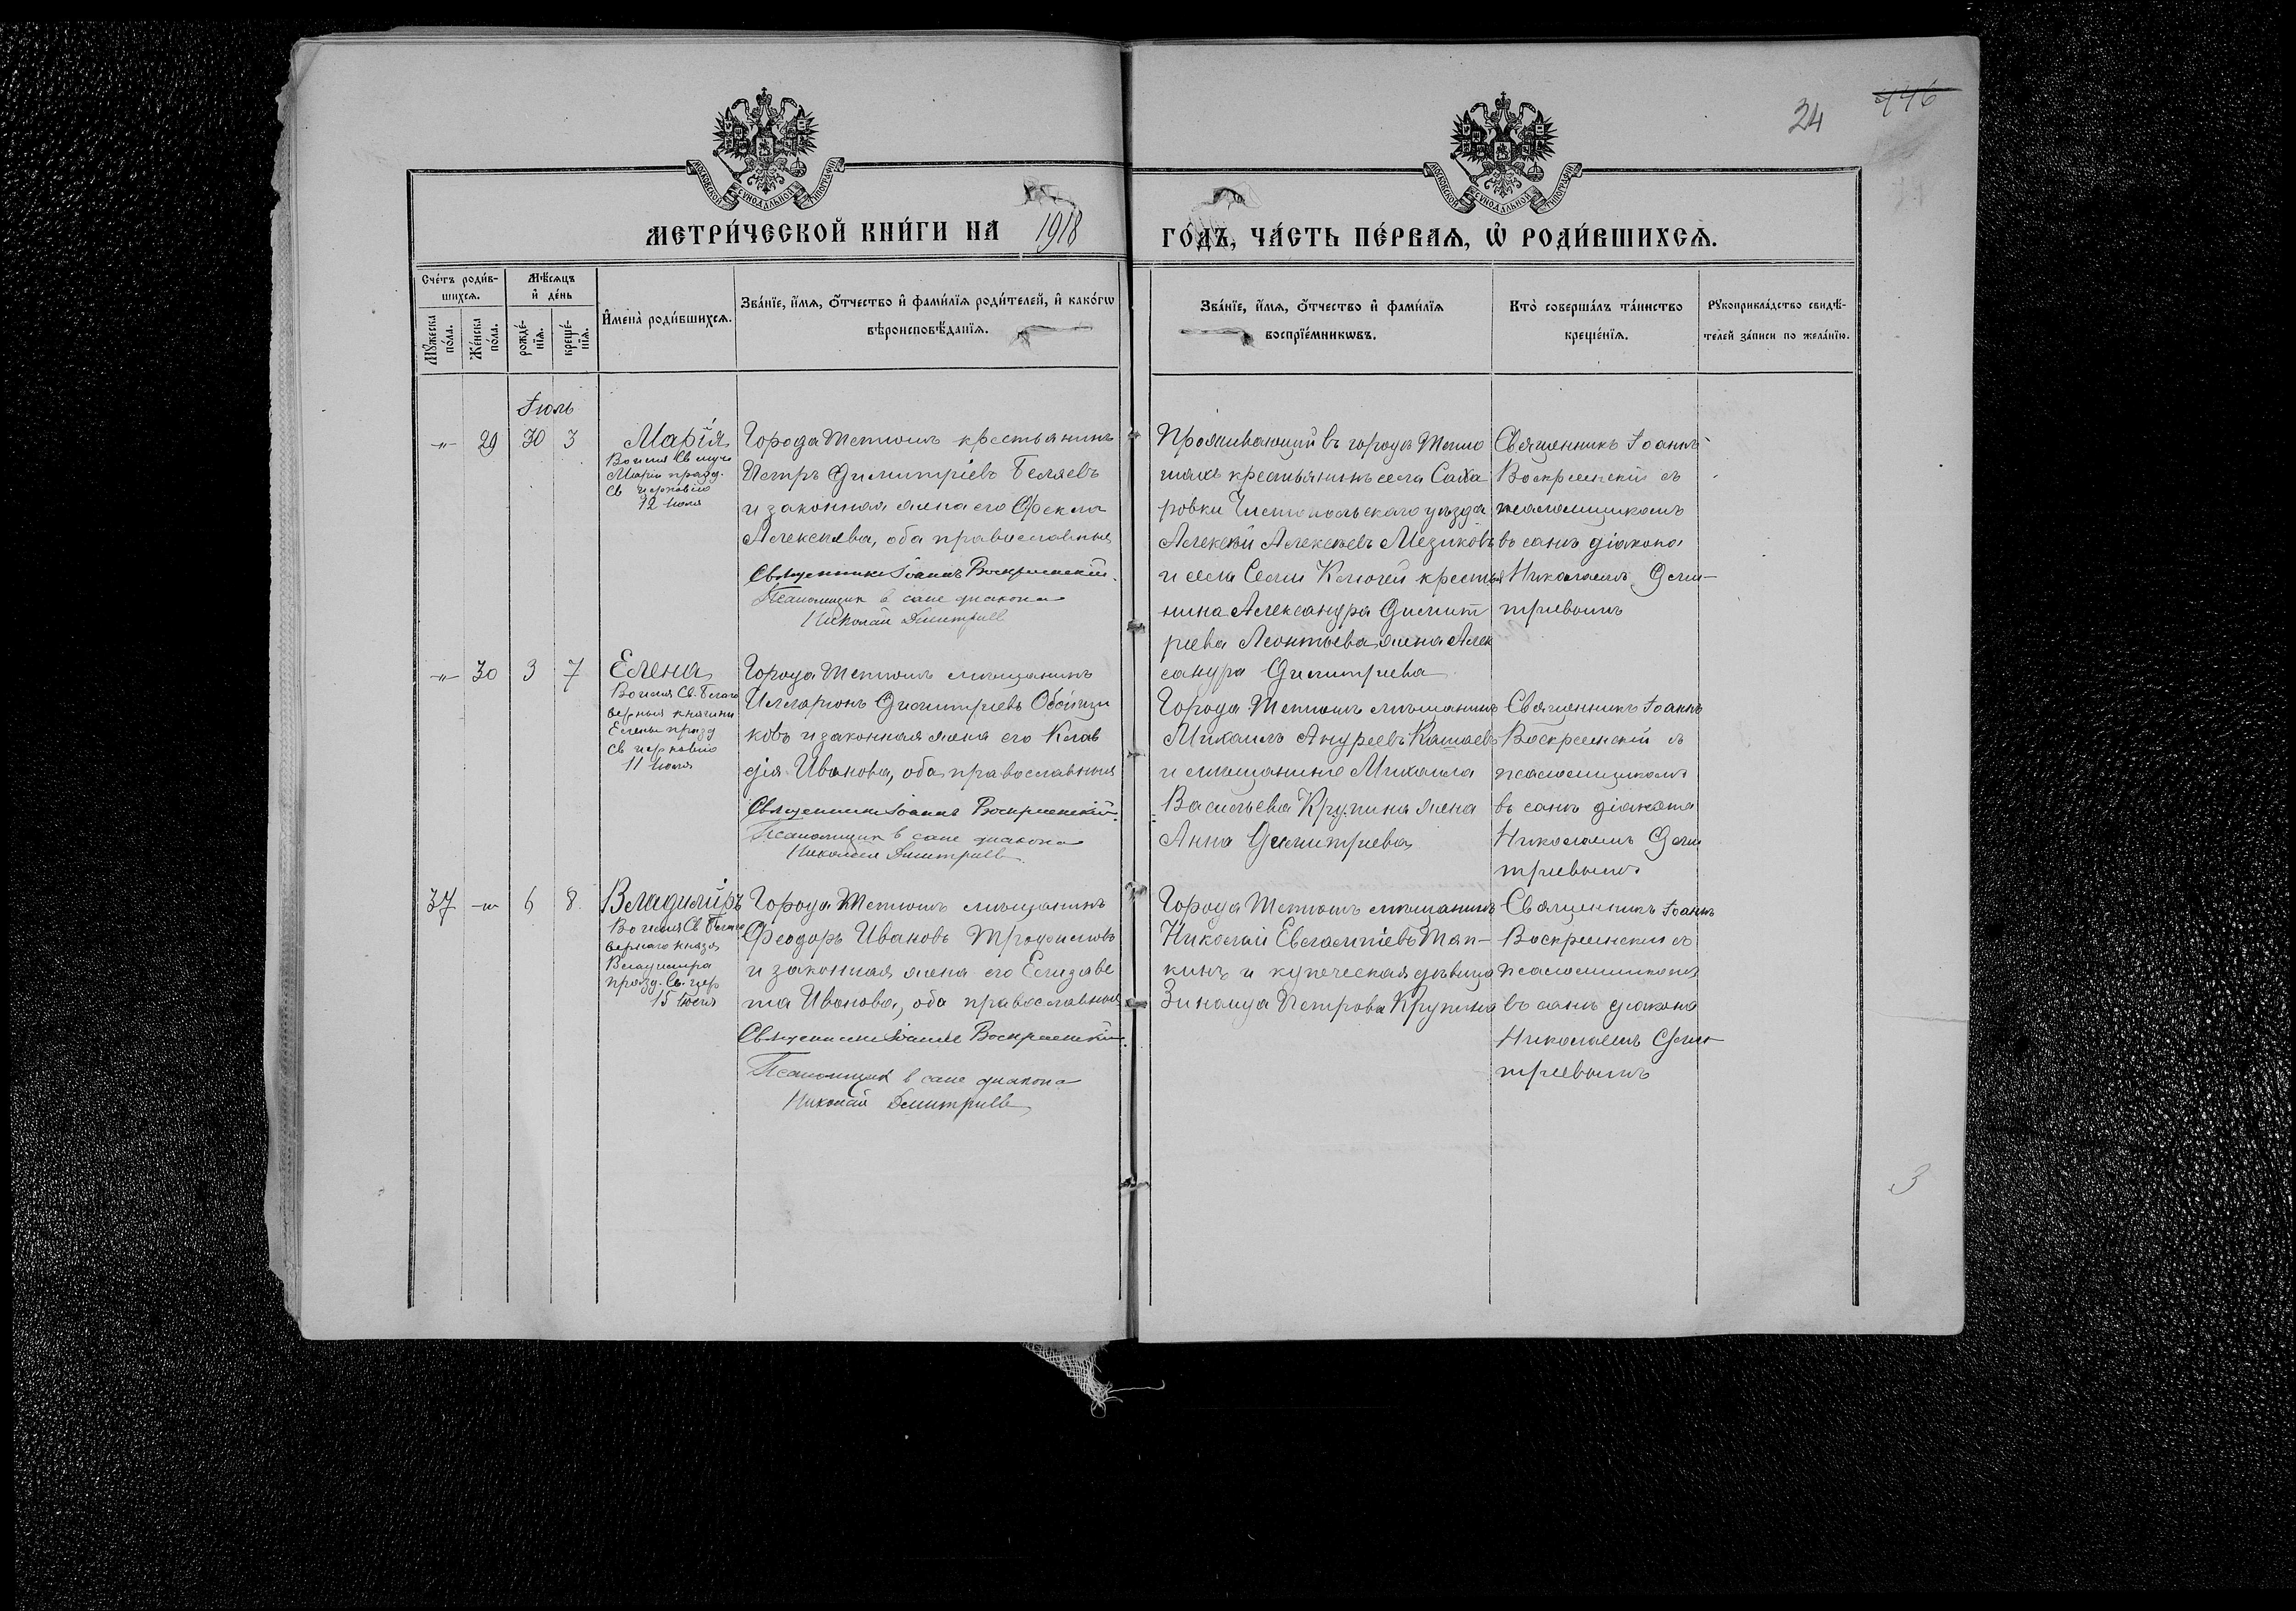 24
446
МОСКОВСКОЙ СѴНОДАЛЬНОЙ ТИПОГРАФІИ
МОСКОВСКОЙ СѴНОДАЛЬНОЙ ТИПОГРАФІИ
МЕТРИ́ЧЕСКОЙ КНИ́ГИ НА 1918 ГО́ДЪ, ЧА́СТЬ ПЕ́РВАѦ, Ѡ҆ РОДИ́ВШИХСѦ.
Сче́тъ роди́в-
шихсѧ.
Мꙋ́жеска по́ла.
Же́нска по́ла.
Мѣ́сѧцъ
и҆ де́нь
рожде́-
нїѧ.
креще́-
нїѧ.
И҆мена̀ роди́вшихсѧ.
Зва́нїе, и҆́мѧ, ѻ҆́тчество и҆ фами́лїѧ роди́телей, и҆ како́гѡ
вѣроисповѣ́данїѧ.
Зва́нїе, и҆́мѧ, ѻ҆́тчество и҆ фами́лїѧ
воспрїе́мникѡвъ.
Кто̀ соверша́лъ та́инство
креще́нїѧ.
Рꙋкоприкла́дство свидѣ́-
телей за́писи по жела́нїю.
Іюль
-"- 29 30 3
Марія
Во имя Св муч
Маріи празд.
Св церковію
12 Іюля
Города Тетюшъ крестьянинъ
Петръ Димитріевъ Беляевъ
и законная жена его Фекла
Алексѣева, оба православные
Священникъ Іоаннъ Воскресенскій.
Псаломщик в сане диакона
Николай Дмитриев
Проживающій въ городѣ Тетю
шахъ крестьянинъ села Саха
ровки Чистопольскаго уѣзда
Алексѣй Алексѣевъ Мезиковъ
и села Семи Ключей крестья
нина Александра Димит
ріева Леонтьева жена Алек
сандра Димитріева
Священникъ Іоаннъ
Воскресенскій съ
псаломщикомъ
въ санѣ діакона
Николаемъ Дми-
тріевымъ
-"- 30 3 7
Елена
Во имя Св. Благо
верныя княгини
Елены празд
Св церковію
11 Іюля
Города Тетюшъ мѣщанинъ
Илларіонъ Димитріевъ Обойщи
ковъ и законная жена его Клав
дія Иванова, оба православные
Священникъ Іоаннъ Воскресенскій.
Псаломщик в сане диакона
Николай Дмитриев
Города Тетюшъ мѣщанинъ
Михаилъ Андреевъ Камаевъ
и мѣщанина Михаила
Васильева Крупина жена
Анна Димитріева
Священникъ Іоаннъ
Воскресенскій съ
псаломщикомъ
въ санѣ діакона
Николаемъ Дми
тріевымъ
37 -"- 6 8
Владиміръ
Во имя Св Благо
вернаго князя
Владимира
празд. Св. цер
15 Іюля
Города Тетюшъ мѣщанинъ
Феодоръ Ивановъ Трофимовъ
и законная жена его Елизаве
та Иванова, оба православные
Священникъ Іоаннъ Воскресенскій.
Псаломщик в сане диакона
Николай Дмитриев
Города Тетюшъ мѣщанинъ
Николай Евлампіевъ Тап-
кинъ и купеческая дѣвица
Зинаида Петрова Крупина
Священникъ Іоаннъ
Воскресенскій съ
псаломщикомъ
въ санѣ діакона
Николаемъ Дми-
тріевымъ
3